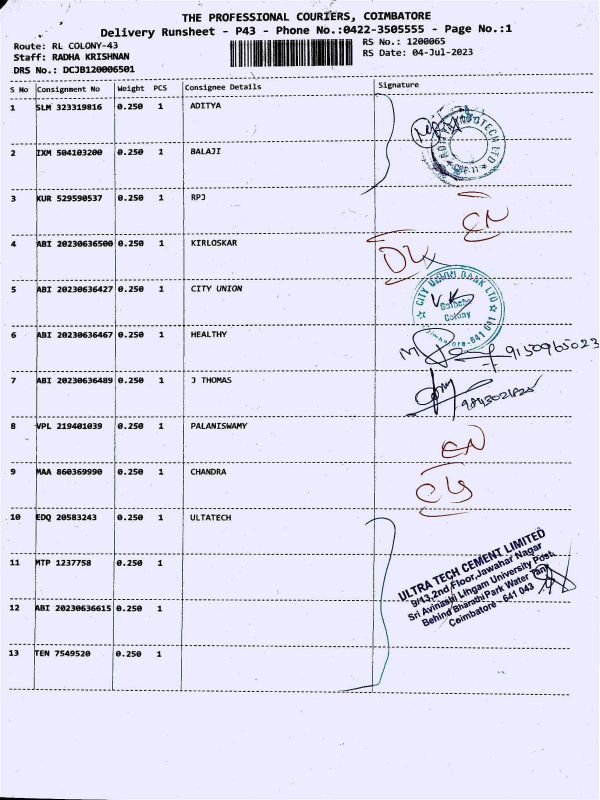 THE PROFESSIONAL COURIERS, COIMBATORE
Delivery Runsheet - P43 - Phone No.:0422-3505555 - Page No.:1
Route: RL COLONY-43
RS No.: 1200065
Staff: RADHA KRISHNAN
RS Date: 04-Jul-2023
DRS No.: DCJB120006501
S No Consignment No Weight PCS Consignee Details Signature
1 SLM 323319816 0.250 1 ADITYA
2 IXM 504103200 0.250 1 BALAJI
3 KUR 529590537 0.250 1 RPJ
4 ABI 20230636500 0.250 1 KIRLOSKAR
5 ABI 20230636427 0.250 1 CITY UNION
CITY UNION BANK LTD
Colony
641 011
6 ABI 20230636467 0.250 1 HEALTHY
9150965023
7 ABI 20230636489 0.250 1 J THOMAS
8 VPL 219401039 0.250 1 PALANISWAMY
9 MAA 860369990 0.250 1 CHANDRA
10 EDQ 20583243 0.250 1 ULTATECH
11 MTP 1237758 0.250 1
12 ABI 20230636615 0.250 1
13 TEN 7549520 0.250 1
ULTRA TECH CEMENT LIMITED
9/13,2nd Floor,Jawahar Nagar
Sri Avinashi Lingam University Post,
Behind Bharathi Park Water Tank
Coimbatore - 641 043